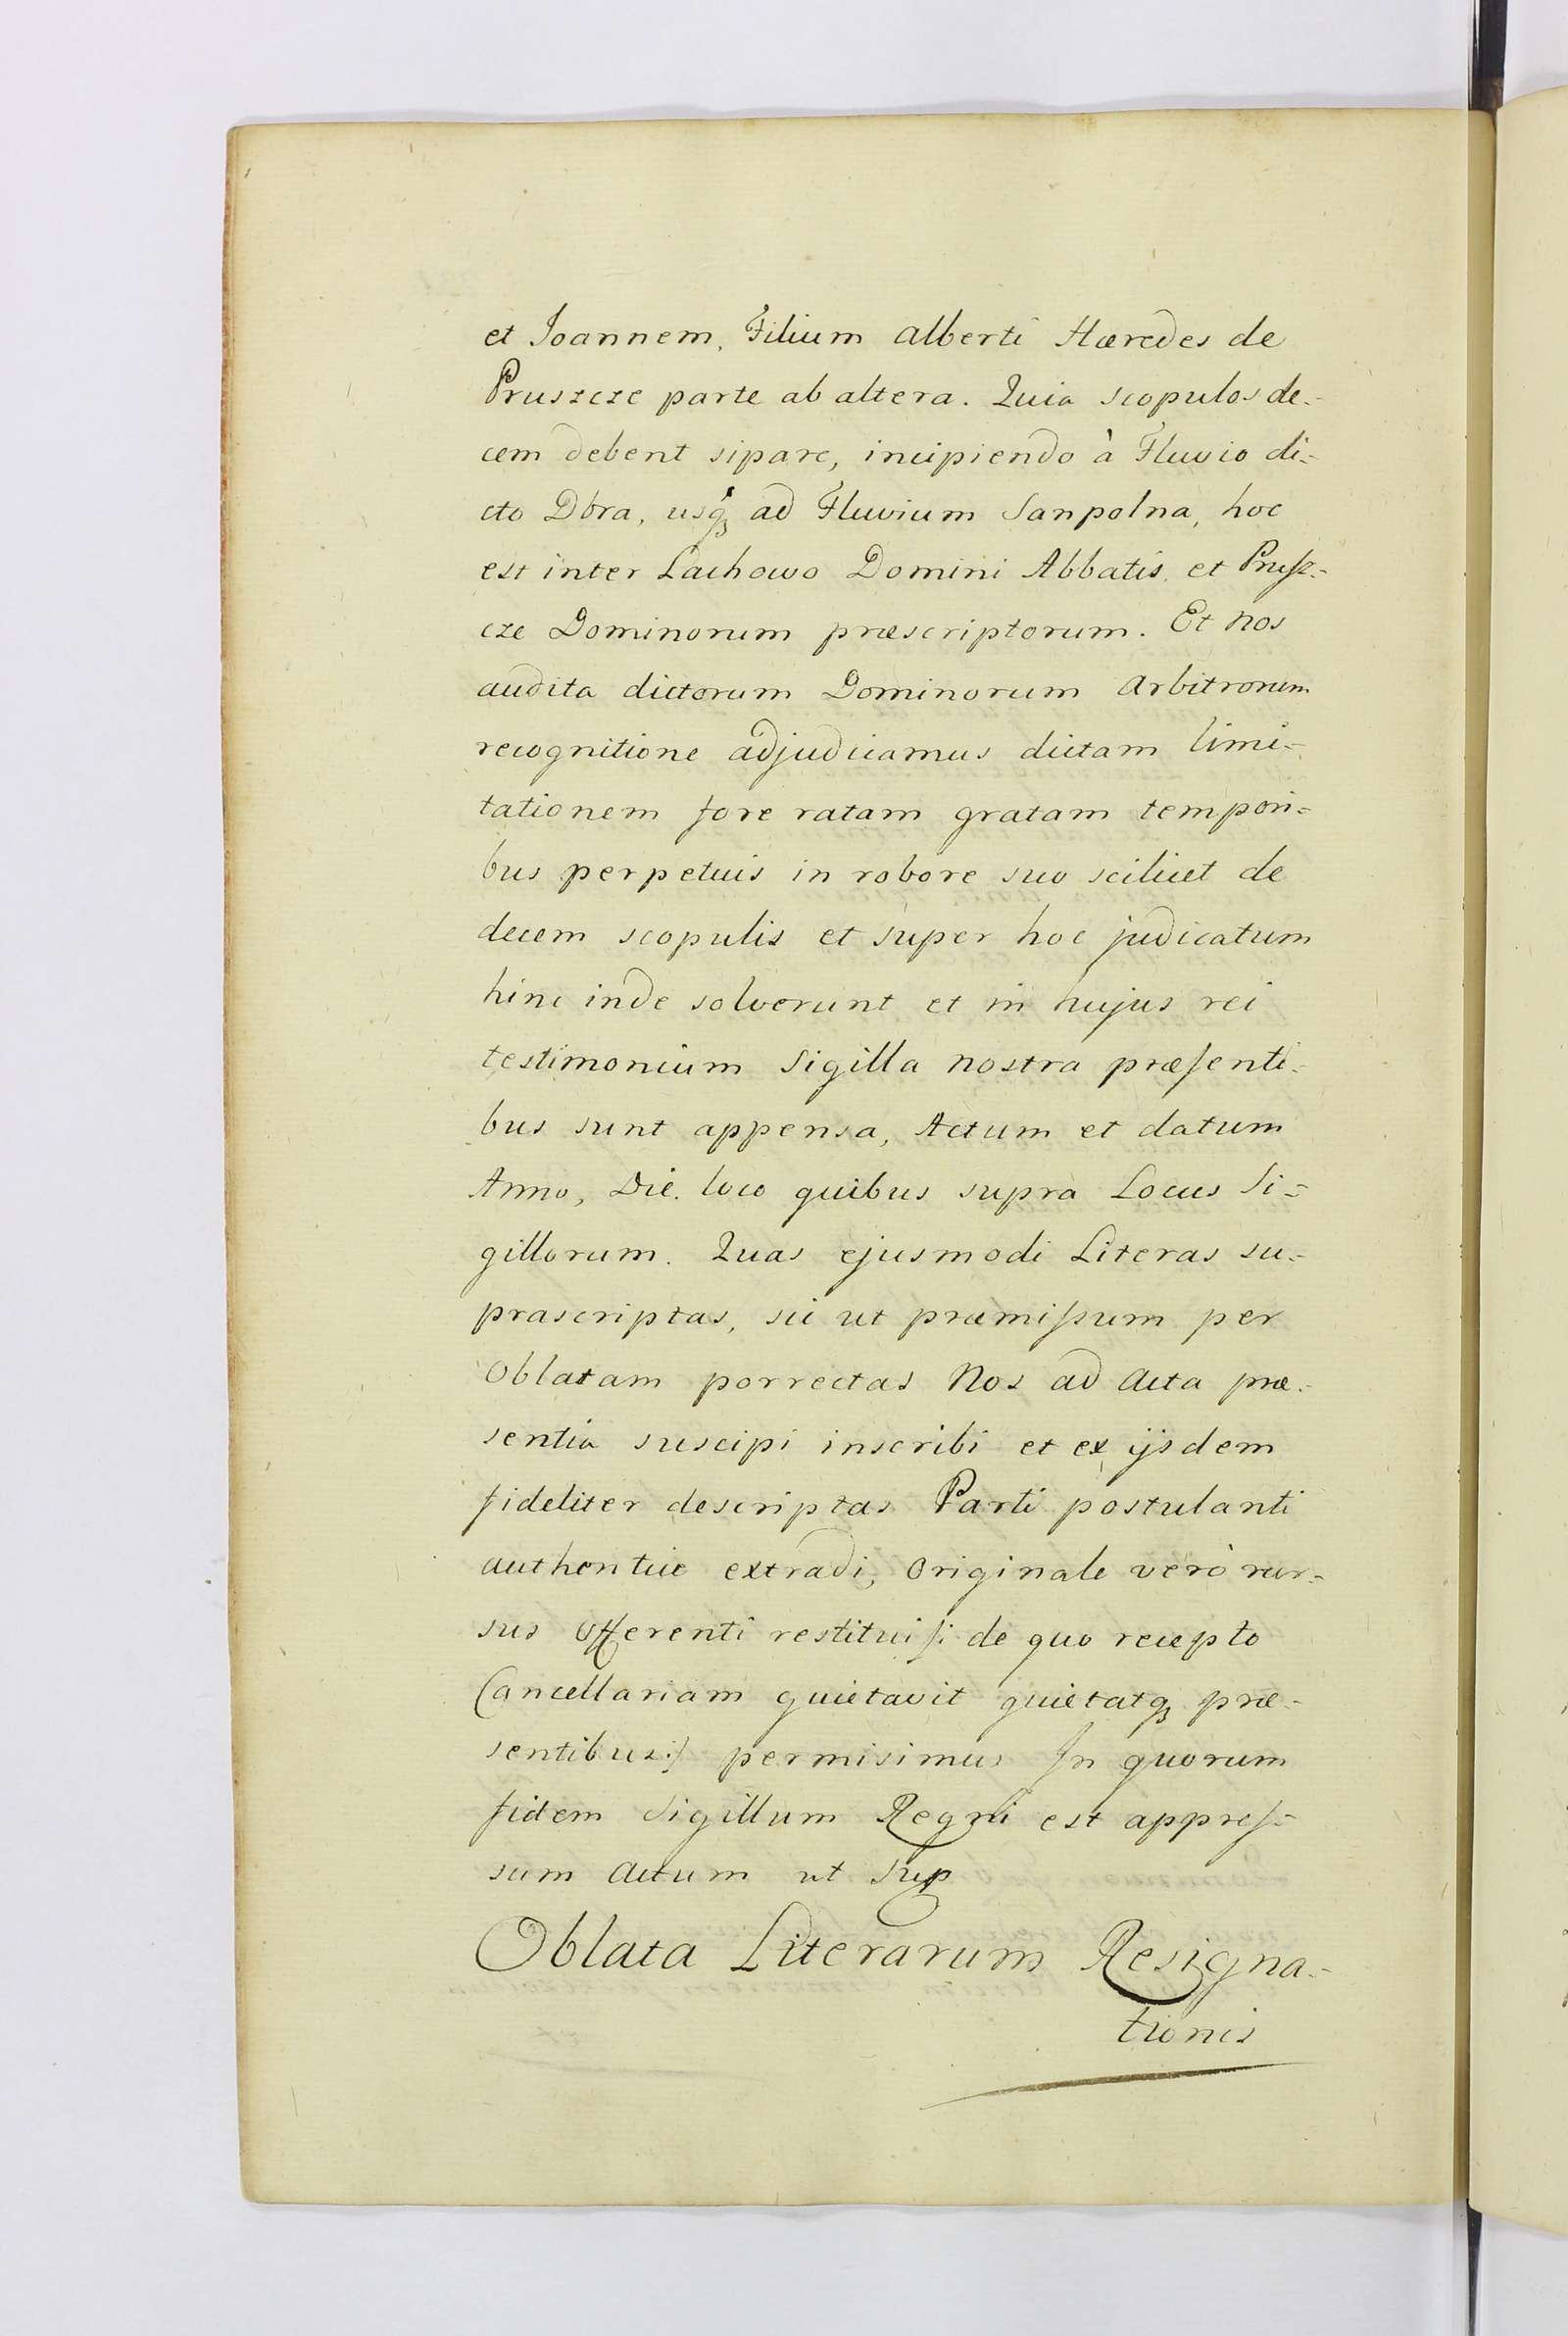 et Joannem, Filium Alberti Hæredes de
Pruszcze parte ab altera. Quia scopulos de-
cem debent sipare, incipiendo à Fluvio di-
cto Dbra, usq́ꝫ ad Fluvium Sanpolna, hoc
est inter Lachowo Domini Abbatis, et Prusz-
cze Dominorum præscriptorum. Et Nos
audita dictorum Dominorum Arbitrorum
recognitione adjudicamus dictam limi-
tationem fore ratam gratam tempori-
bus perpetuis in robore suo scilicet de
decem scopulis et super hoc judicatum
hinc inde solverunt et in hujus rei
testimonium Sigilla nostra præsenti-
bus sunt appensa, Actum et datum
Anno, Die. loco quibus supra Locus Si-
gillorum. Quas ejusmodi Literas su-
prascriptas, sic ut præmissum per
Oblatam porrectas Nos ad Acta præ-
sentia suscipi inscribi et ex ijsdem
fideliter descriptas Parti postulanti
authentice extradi, Originale verò rur-
sus Offerenti restitui /: de quo recepto
Cancellariam quietavit quietatqꝫ præ-
sentibus :/ permisimus In quorum
fidem Sigillum Regni est appres-
sum Actum ut sup
Oblata Literarum Resigna-
tionis